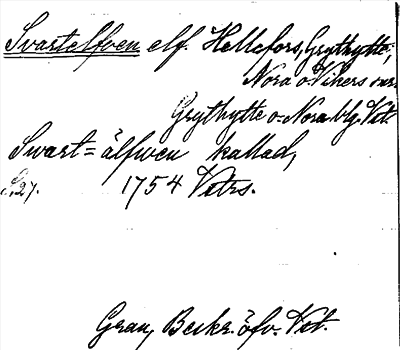 Svartelfven elf. Hellefors, Grythytte,
Nora o. Vikers snr.
Grythytte o. Nora bg. Vst.
Swart=älfwen kallad,
S. 27. 1754 Vetrs.
Grau, Beskr. öfv. Vst.